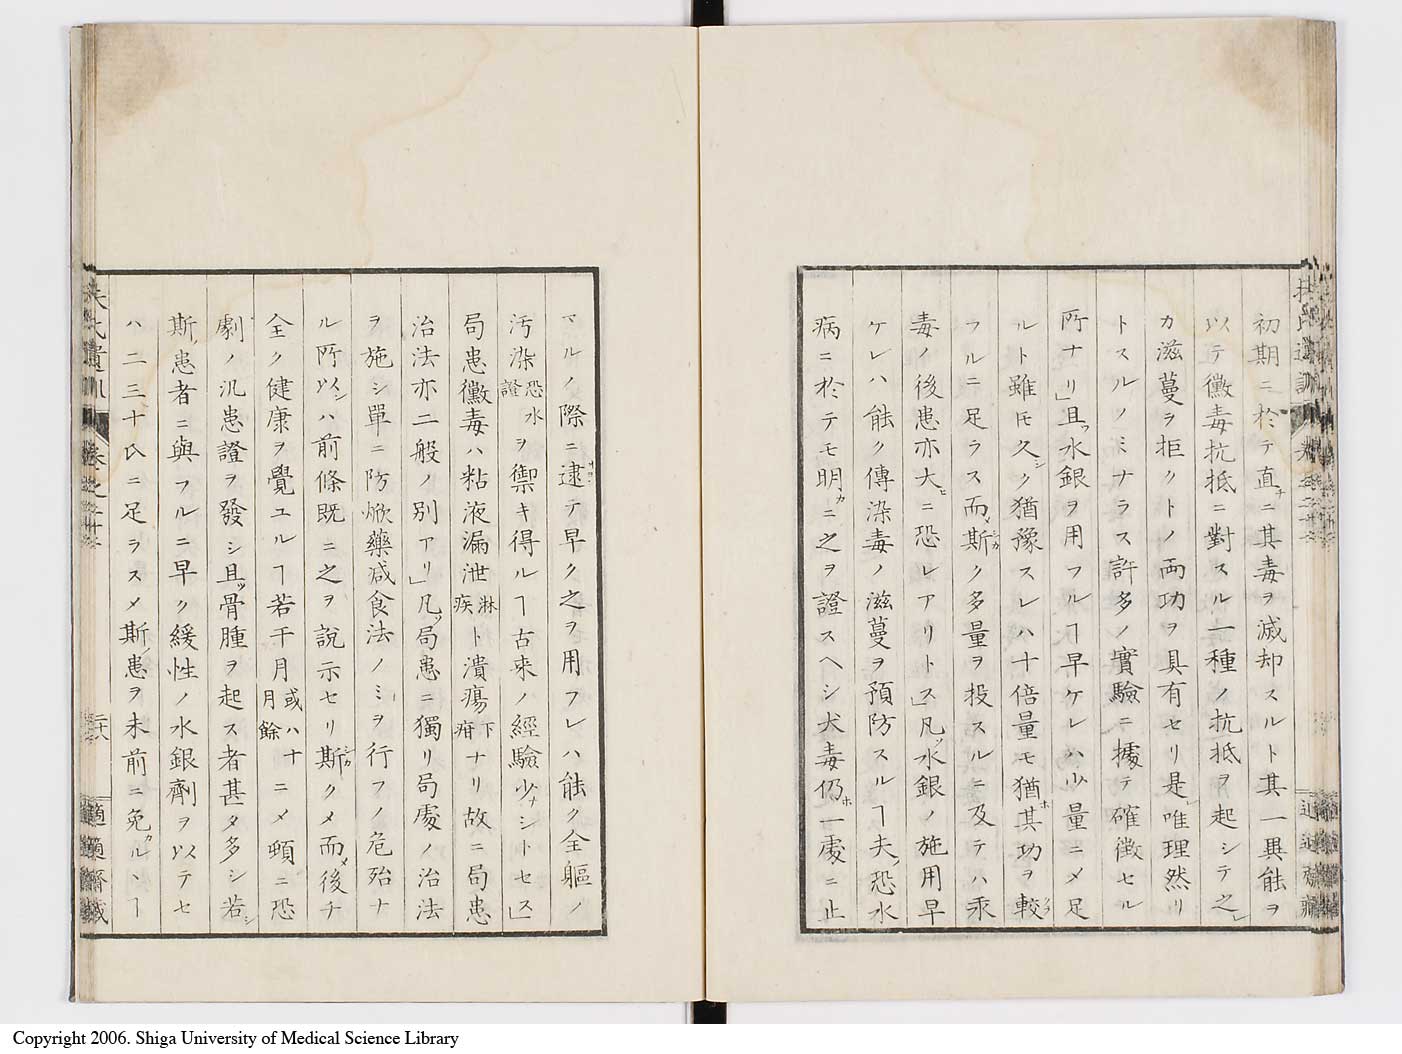 初期ニ於テ直ニ其毒ヲ滅却スルト其一異能ヲ
以テ黴毒抗抵ニ對スル一種ノ抗抵ヲ起シテ之
カ滋蔓ヲ拒クトノ両功ヲ具有セリ是唯理然リ
トスルノミナラス許多ノ實驗ニ據テ確徴セル
所ナリ」且水銀ヲ用フルヿ早ケレハ少量ニメ足
ルト雖𪜈久ク猶豫スレハ十倍量モ猶其功ヲ較
フルニ足ラス而斯ク多量ヲ投スルニ及テハ汞
毒ノ後患亦大ニ恐レアリトス」凡水銀ノ施用早
ケレハ能ク傳染毒ノ滋蔓ヲ預防スルヿ夫恐水
病ニ於テモ明ニ之ヲ證スヘシ犬毒仍一處ニ止
マルノ際ニ逮テ早ク之ヲ用フレハ能ク全軀ノ
汚染恐水證ヲ禦キ得ルヿ古来ノ經驗少シトセス」
局患黴毒ハ粘液漏泄淋疾ト潰瘍下疳ナリ故ニ局患
治法亦二般ノ別アリ」凡局患ニ獨リ局處ノ治法
ヲ施シ單ニ防焮藥減食法ノミヲ行フノ危殆ナ
ル所以ハ前條既ニ之ヲ説示セリ斯クメ而後チ
全ク健康ヲ覺ユルヿ若干月或ハ十月餘ニメ頓ニ恐
劇ノ汎患證ヲ發シ且骨腫ヲ起ス者甚タ多シ若
斯患者ニ與フルニ早ク緩性ノ水銀劑ヲ以テセ
ハ二三十氏ニ足ラスメ斯患ヲ未前ニ免カルヽヿ
扶氏遺訓 巻之二十三
二十八
適適齋藏
Copyright 2006. Shiga University of Medical Science Library